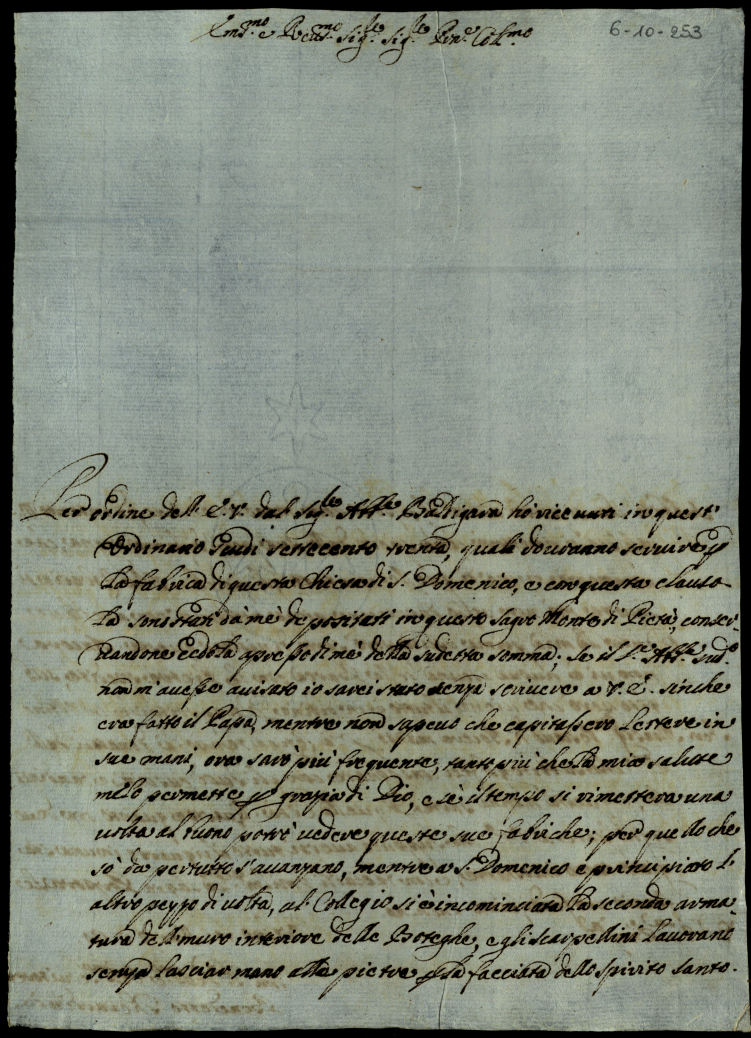 6-10-253
Em.mo e Re.mo Sig.re Sig.re P.ron Col.mo
Per ordine dell' E. V. dal Sig.re Abb.e Baldigara hò riceuuti in quest'
Ordinario scudi settecento trenta, quali douranno seruire p
la fabrica di questa Chiesa di S. Domenico, e con questa clauso-
la sono stati da mè depositati in questo sagro Monte di Pietà, conser-
uandone cedola apresso di mè della sudetta somma; se il S.r Abb.e sud.o
non m'auesse auisato io sarei stato senza scriuere a V. E. sinche
era fatto il Papa, mentre non sapeuo che capitassero lettere in
sue mani, ora sarò più frequente, tanto più che la mia salute
me lo permette p grazia di Dio, e sè il tempo si rimetterà una
uolta al buono potrò uedere queste sue fabriche; per quello che
sò da pertutto s'auanzano, mentre a S. Domenico è principiato l'
altro pezzo di uolta, al Collegio si è incominciata la seconda arma-
tura del muro interiore delle Boteghe, e gli scarpellini lauorano
senza lasciar mano alle pietre p la facciata dello Spirito Santo.